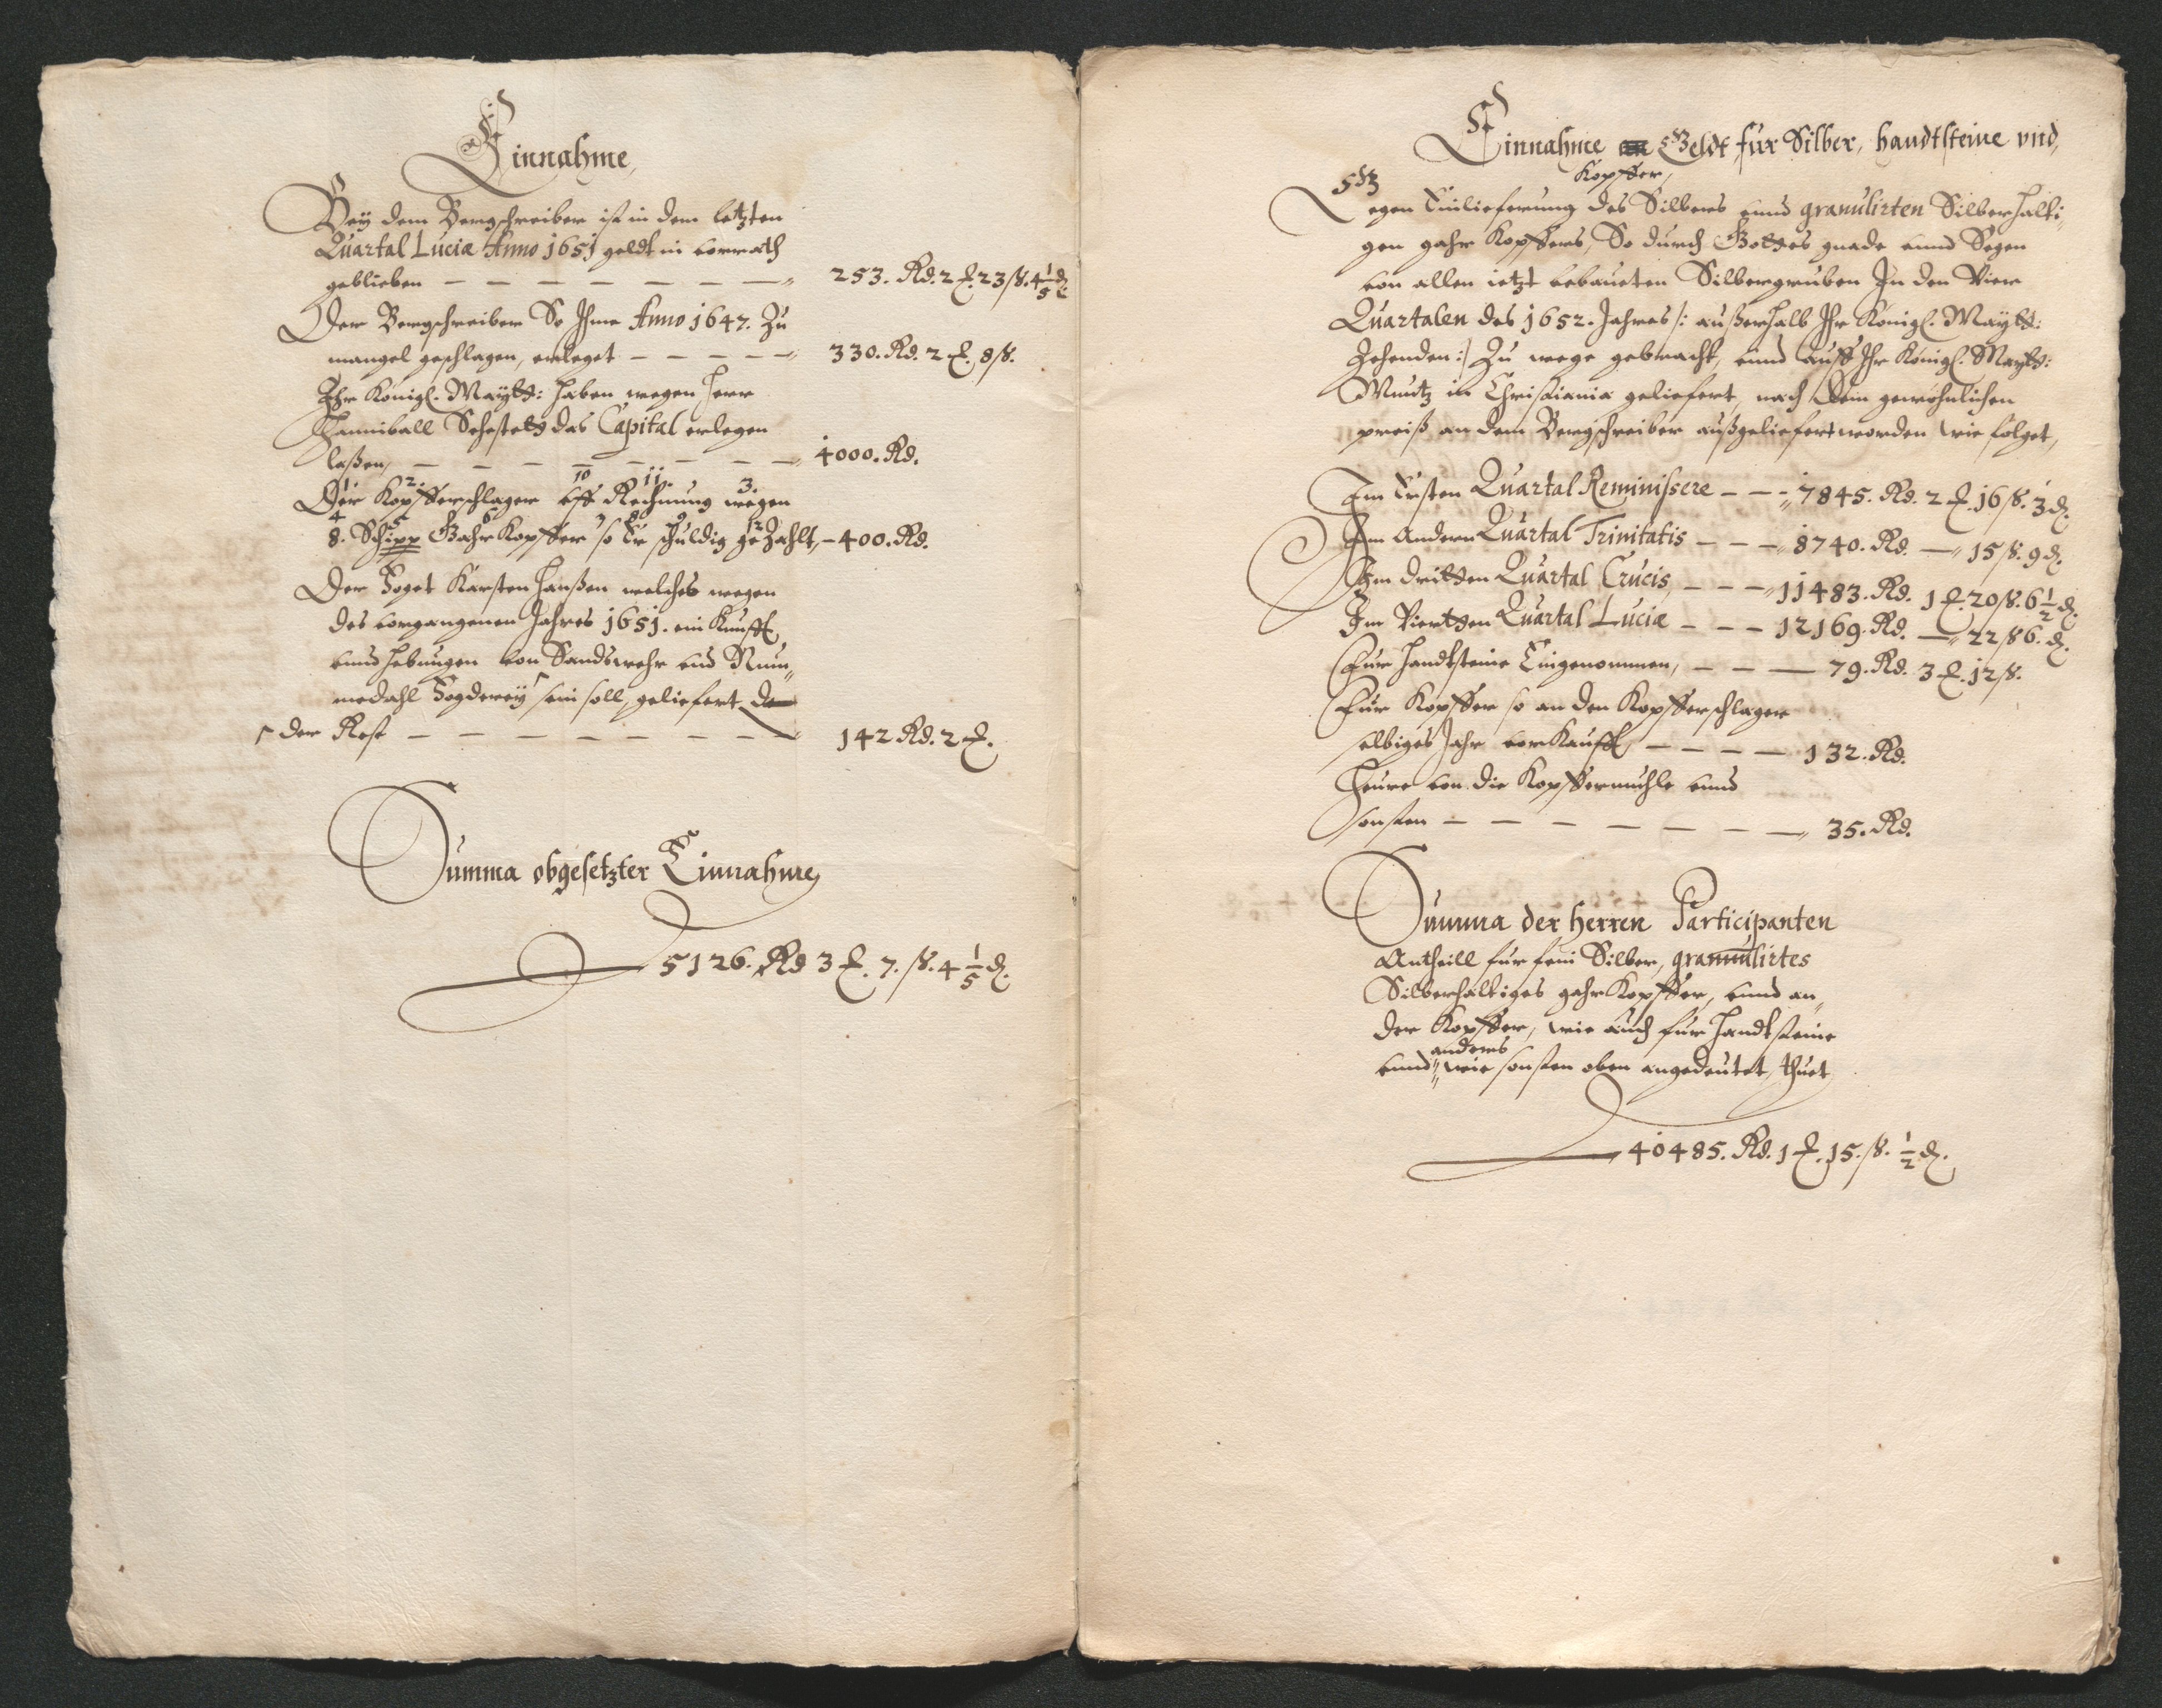 Einnahme,
Bey dem Bergschreiber ist in dem letzten
Quartal Luciæ Anno 1651 geldt in vorrath
geblieben — — — — — — — 253. Rd. 2 ℔. 23 ß. 4 1/5 ₰
Der Bergschreiber So Ihme Anno 1647. Zu
mangel geschlagen, erleget — — — — — 330. Rd. 2 ℔. 8 ß.
Ihr Königl. Maytt: haben wegen Herr
Hanniball Sehestetts das Capital erlegen
laßen, — — — — — — — — 4000. Rd.
1. 2. 10 11. 3.
Der Kopfferschlager vff Rechnung wegen
4 5 6 7 8 9 12
8. Schipp Gahr Kopffer so Er schuldig gezahlt, – 400. Rd.
Der Foget Karsten Hanßen welches wegen
des vorgangenen Jahres 1651. ein Kunfft
vnnd hebungen von Sandswehr vnd Num„
medahl Fogderey ⌈ sein soll, geliefert
⌈ der Rest — — — — — — — — 142 Rd. 2 ℔.
Summa obgesetzter Einnahme,
5126. Rd 3 ℔. 7. ß. 4 1/5 ₰.
Einnahme Geldt für Silber, handtsteine vnd,
Kopffer,
egen Einlieferung des Silbers vnnd granulirten Silberhalti„
gen gahr Kopffers, So durch Gottes gnade vnnd Segen
von allen ietzt bebaueten Silbergruben In den Vier
Quartalen des 1652. Jahres /: außerhalb Ihr Königl. Maytt:
Zehenden :/ Zu wege gebracht, vnnd auff Ihr Königl. Maytt:
Muntz in Christiania geliefert, nach dem gewöhnlichen
preiß an dem Bergschreiber außgeliefert worden wie folget,
Im Ersten Quartal Reminiscere — — – 7845. Rd. 2 ℔. 16 ß. 3 ₰.
Im Andern Quartal Trinitatis — — — 8740. Rd. — 15 ß. 9 ₰.
Im dritten Quartal Crucis, — — — 11483. Rd. 1 ℔. 20 ß. 6 1/2 ₰.
Im Viertten Quartal Luciæ — — — 12169. Rd. — 22 ß 6. ₰.
Für handtsteine Eingenommen, — — — 79. Rd. 3 ℔. 12 ß.
Für Kopffer so an den Kopfferschlager
selbiges Jahr verkaufft, — — — — 132. Rd.
Heure von die Kopffermuhle vnnd
sonsten — — — — — — — 35. Rd.
Summa der Herren Participanten
Antheill für fein Silber, granulirtes
Silberhaltiges gahr Kopffer, vnnd an„
der Kopffer, wie auch für handtsteine
anders
vnnd „ wie sonsten oben angedeutet, thuet
40485. Rd. 1 ℔. 15. ß. 1/2 ₰.